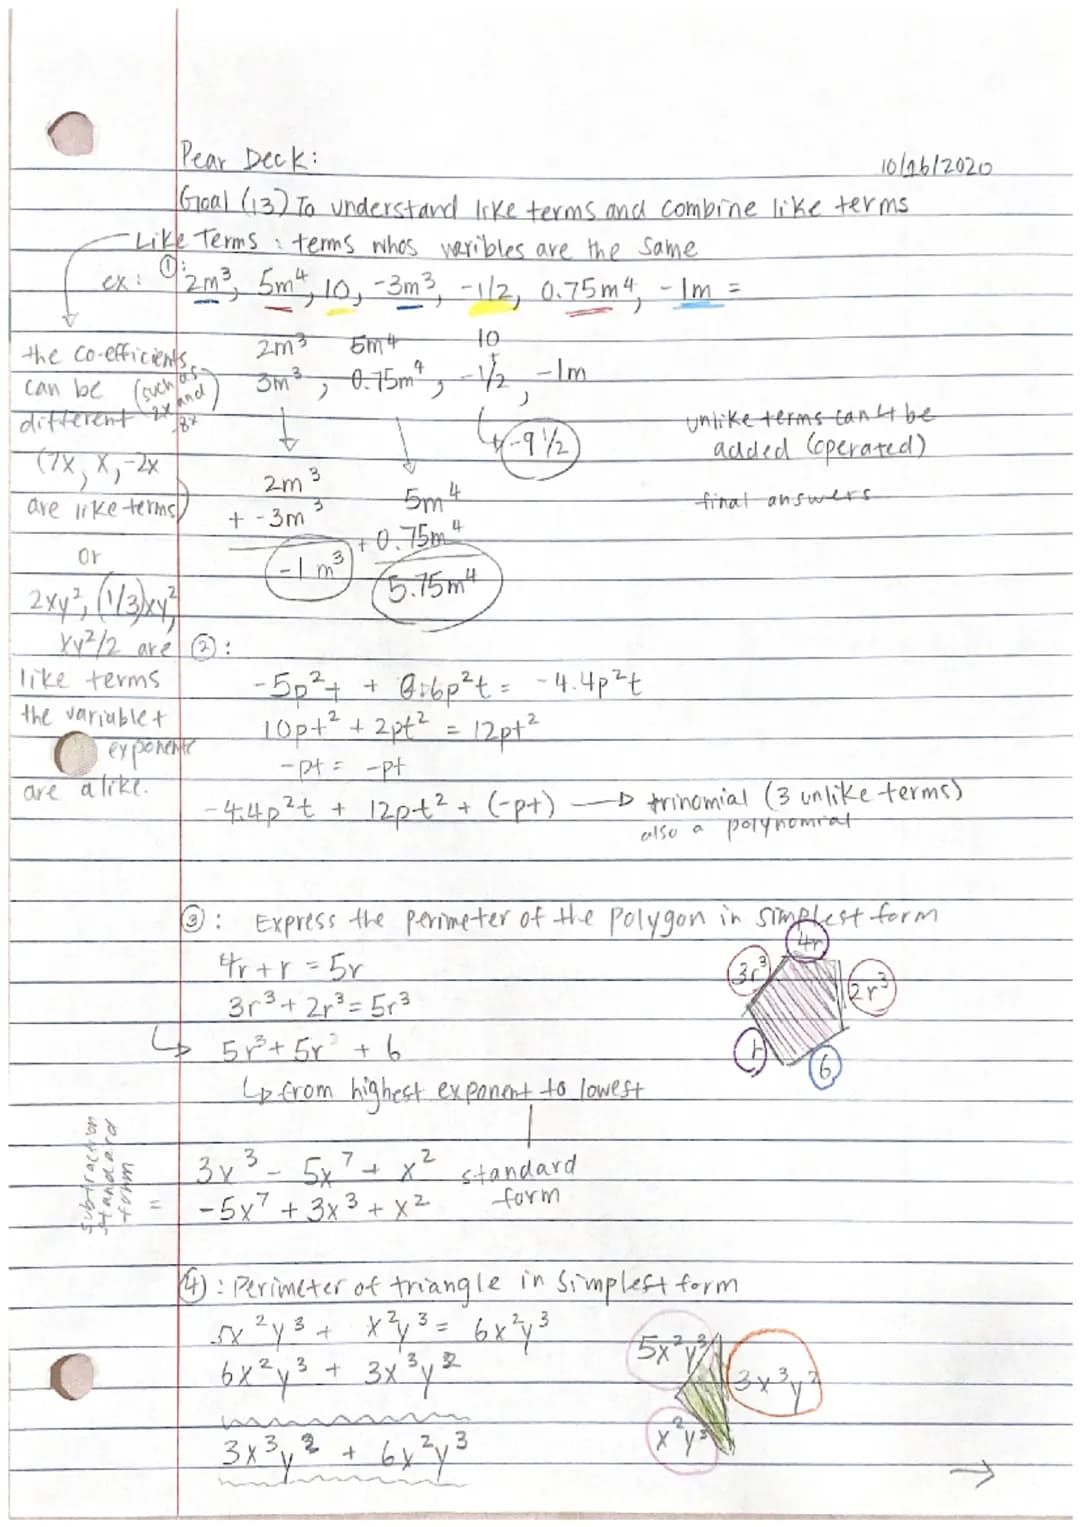 Pear Deck:
10/26/2020
Goal (13) To understand like terms and combine like terms
Like Terms : terms whos varibles are the same
ex: ①: 2m³, 5m⁴, 10, -3m³, -1/2, 0.75m⁴, -1m =
the co-efficients
can be (such as
different 2x and
8x)
(7x, x, -2x
are like terms)
or
2xy², (1/3)xy²,
xy²/2 are
like terms
the variable +
exponente
are alike.
2m³ 5m⁴ 10
3m³, 0.75m⁴, -1/2, -1m
-9 1/2
unlike terms can't be
added (operated)
2m³
+ -3m³
-1m³
5m⁴
+ 0.75m⁴
5.75m⁴
final answers
②:
-5p²t + 0.6p²t = -4.4p²t
10pt² + 2pt² = 12pt²
-pt = -pt
-4.4p²t + 12pt² + (-pt) → trinomial (3 unlike terms)
also a polynomial
③: Express the perimeter of the polygon in simplest form
4r + r = 5r
3r³ + 2r³ = 5r³
5r³ + 5r + 6
from highest exponent to lowest
4r
3r³
2r³
r
6
subtraction
standard
form
=
3x³ - 5x⁷ + x² standard
-5x⁷ + 3x³ + x² form
④: Perimeter of triangle in simplest form
5x²y³ + x²y³ = 6x²y³
6x²y³ + 3x³y²
3x³y² + 6x²y³
5x²y³
3x³y²
x²y³